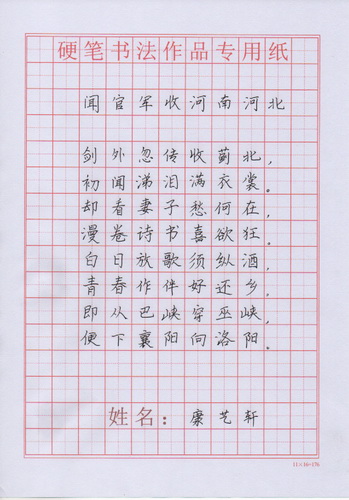 硬笔书法作品专用纸
闻官军收河南河北
剑外忽传收蓟北，
初闻涕泪满衣裳。
却看妻子愁何在，
漫卷诗书喜欲狂。
白日放歌须纵酒，
青春作伴好还乡。
即从巴峡穿巫峡，
便下襄阳向洛阳。
姓名：糜艺轩
11×16=176